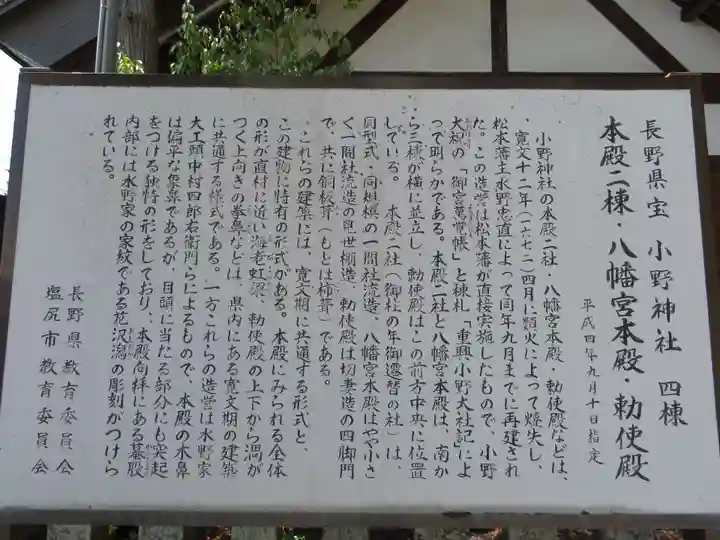 長野県宝 小野神社 四棟
本殿二棟・八幡宮本殿・勅使殿
平成四年九月十日指定
小野神社の本殿二社・八幡宮本殿・勅使殿などは、
寛文十二年(一六七二)四月に類火によって焼失し、
松本藩主水野忠直によって同年九月までに再建され
た。この造営は松本藩が直接実施したもので、小野
大祝の「御宮萬覚帳」と棟札「重興小野大社記」によ
って明らかである。本殿二社と八幡宮本殿は、南か
ら三棟が横に並立し、勅使殿はこの前方中央に位置
している。 本殿二社(御社の年御遷替の社)は、
同型式・同規模の一間社流造、八幡宮本殿はやや小さ
く一間社流造の見世棚造、勅使殿は切妻造の四脚門
で、共に銅板葺(もとは柿葺)である。
これらの建築には、寛文期に共通する形式と、
この建物に特有の形式がある。本殿にみられる全体
の形が直材に近い海老虹梁、勅使殿の上下から渦が
つく上向きの拳鼻などは、県内にある寛文期の建築
に共通する様式である。一方これらの造営は水野家
大工頭中村四郎右衛門らによるもので、本殿の木鼻
は偏平な象鼻であるが、目頭に当たる部分にも突起
をつける独特の形をしており、本殿向拝にある蟇股
内部には水野家の家紋である花沢潟の彫刻がつけら
れている。
長野県教育委員会
塩尻市教育委員会